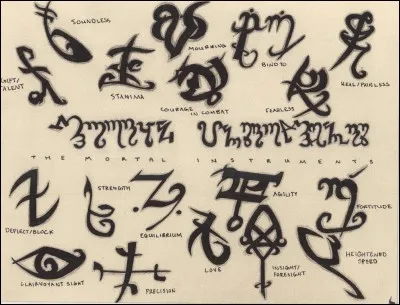 SOUNDLESS
MOURNING
BIND TO
TALENT
STAMINA
COURAGE
IN COMBAT
FEARLESS
HEAL/PAINLESS
THE MORTAL INSTRUMENTS
DEFLECT/BLOCK
STRENGTH
EQUILIBRIUM
AGILITY
FORTITUDE
CLAIRVOYANT SIGHT
PRECISION
LOVE
INSIGHT/
FORESIGHT
HEIGHTENED
SPEED